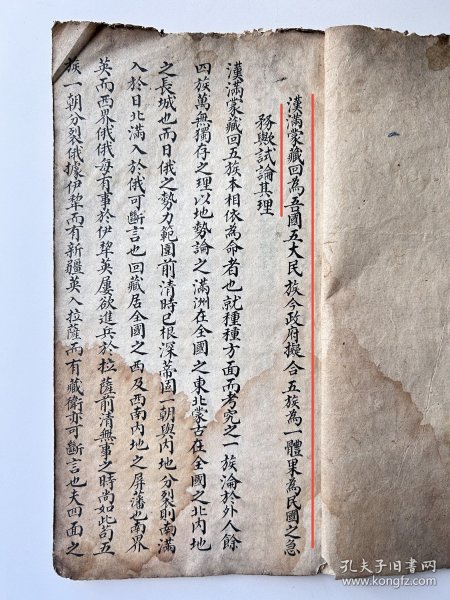 漢滿蒙藏回為吾國五大民族今政府擬合五族為一體果為民國之急
務歟試論其理
漢滿蒙藏回五族本相依為命者也就種種方面而考究之一族淪於外人餘
四族萬無獨存之理以地勢論之滿洲在全國之東北蒙古在全國之北內地
之長城也而日俄之勢力範圍前清時已根深蒂固一朝與內地分裂則南滿
入於日北滿入於俄可斷言也回藏居全國之西及西南內地之屏藩也南界
英而西界俄俄每有事於伊犁英屢欲進兵於拉薩前清無事之時尚如此茍五
族一朝分裂俄據伊犁而有新疆英入拉薩而有藏衛亦可斷言也夫四面之
孔夫子旧书网
www.kongfz.com